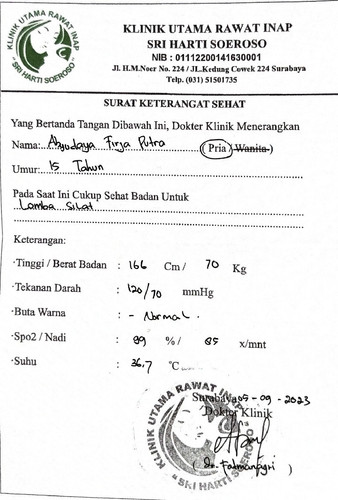 KLINIK UTAMA RAWAT INAP
"SRI HARTI SOEROSO"
KLINIK UTAMA RAWAT INAP
SRI HARTI SOEROSO
NIB : 01112200141630001
Jl. H.M.Noer No. 224 / JL.Kedung Cowek 224 Surabaya
Telp. (031) 51501735
SURAT KETERANGAT SEHAT
Yang Bertanda Tangan Dibawah Ini, Dokter Klinik Menerangkan
Nama: Abyudaya Firja Putra (Pria - Wanita-)
Umur: 15 Tahun
Pada Saat Ini Cukup Sehat Badan Untuk
Lomba Silat
Keterangan:
·Tinggi / Berat Badan : 166 Cm / 70 Kg
·Tekanan Darah : 120/70 mmHg
·Buta Warna : - Normal.
·Spo2 / Nadi : 99 % / 85 x/mnt
·Suhu : 36,7 °C
Surabaya 05 - 09 - 2023
Dokter Klinik
KLINIK UTAMA RAWAT INAP
"SRI HARTI SOEROSO"